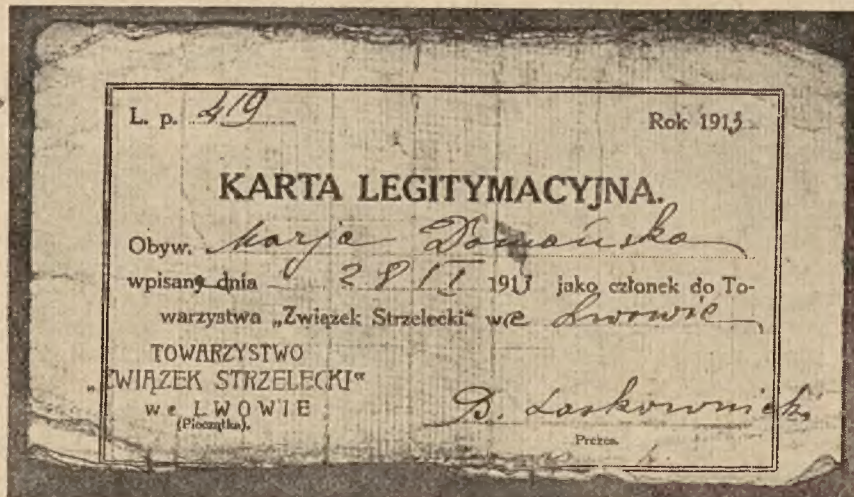 L. p. 419 Rok 1913
KARTA LEGITYMACYJNA.
Obyw. Marja Domańska
wpisany dnia 28 II 1913 jako członek do To-
warzystwa „Związek Strzelecki" we Lwowie
TOWARZYSTWO
„ZWIĄZEK STRZELECKI"
we LWOWIE
(Pieczątka).
B. Laskownicki
Prezes.